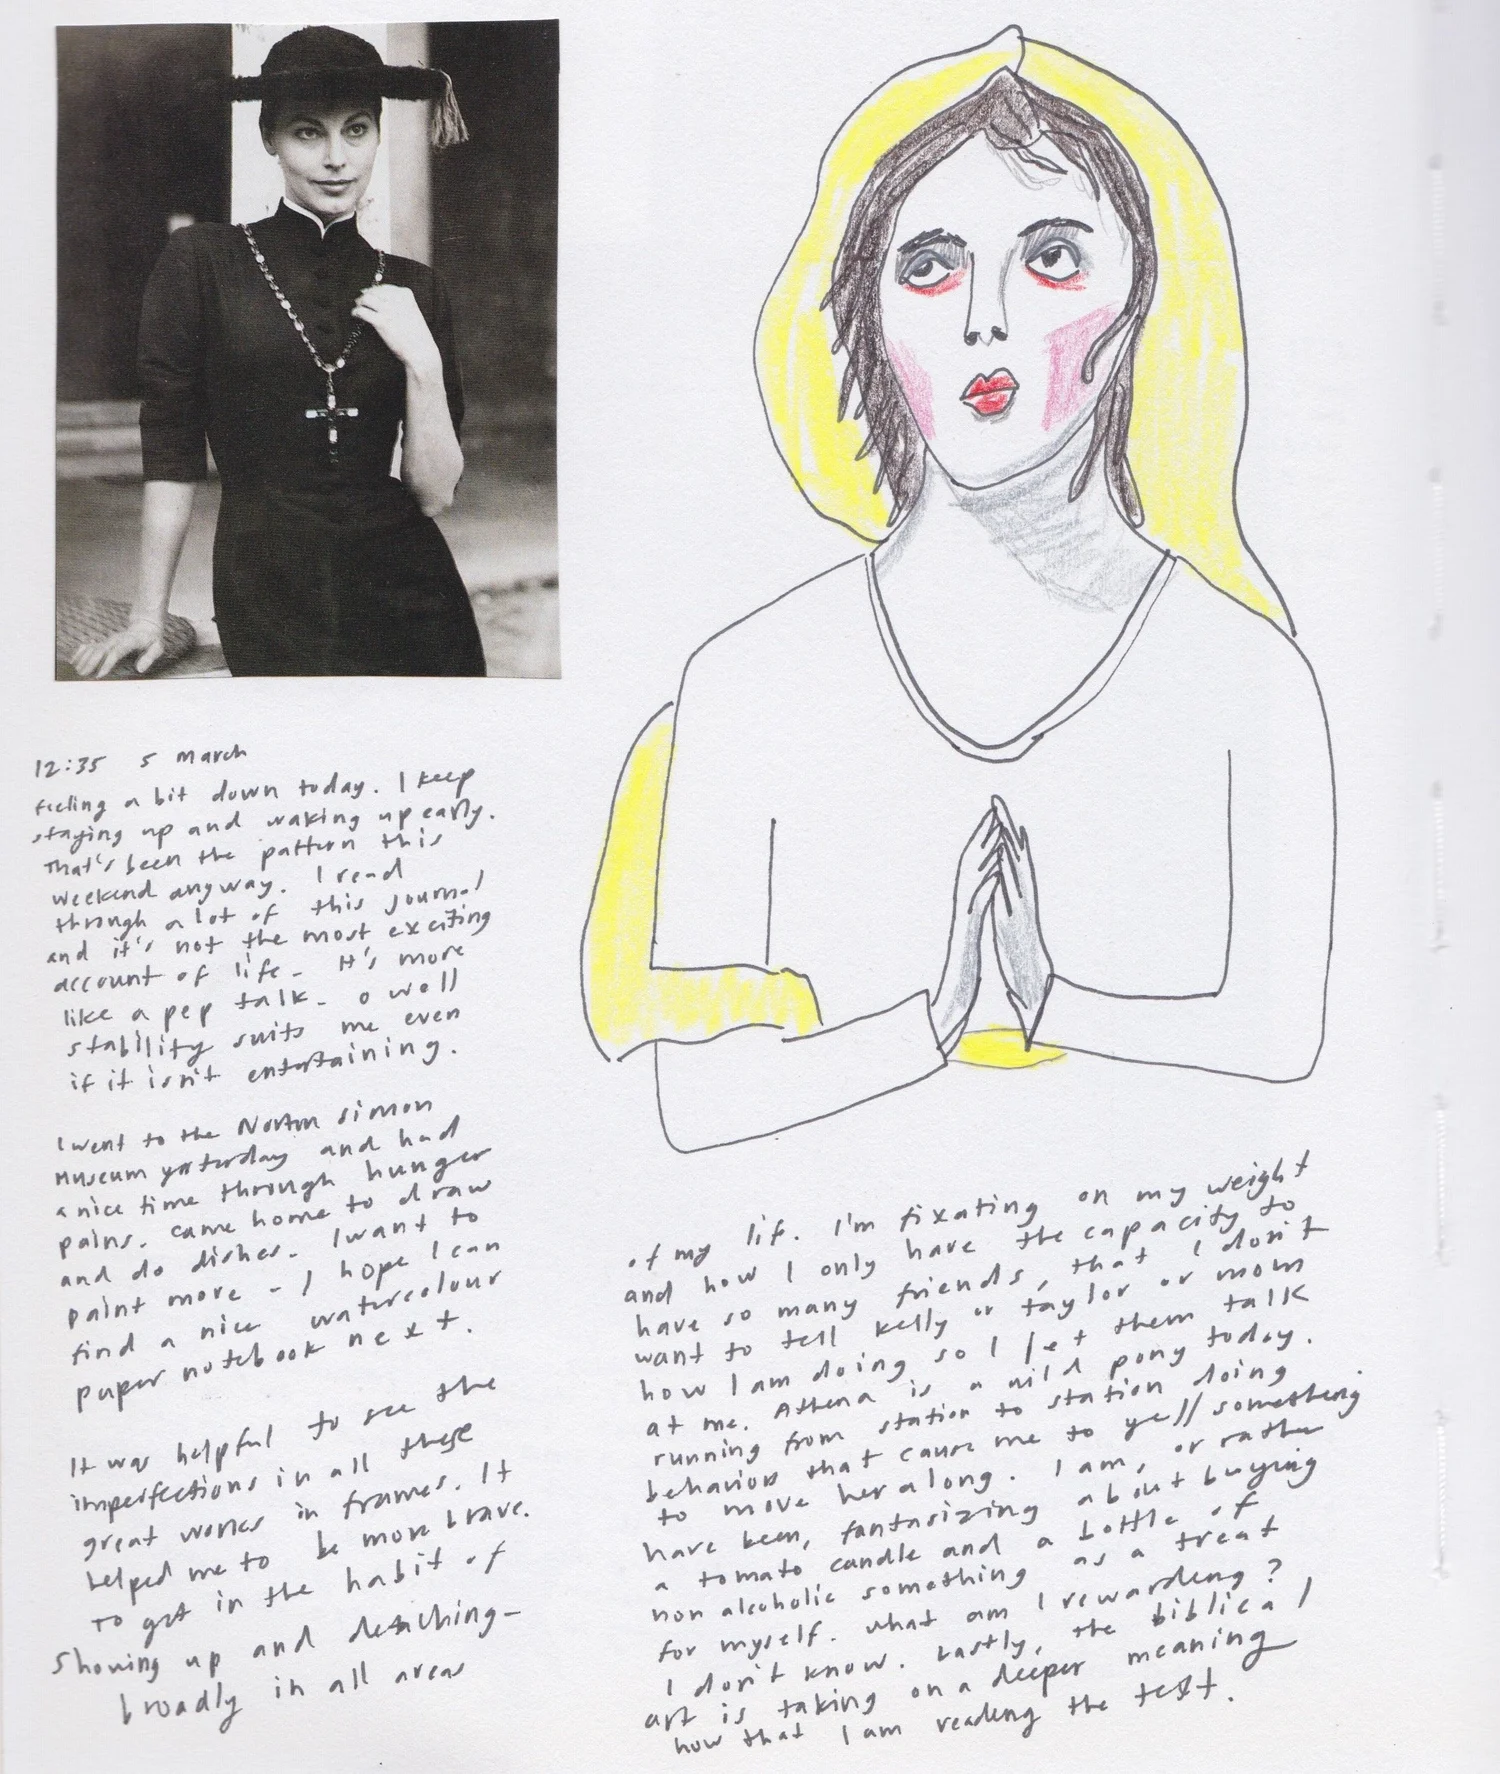 12:35 5 march
feeling a bit down today. I keep
staying up and waking up early.
That's been the pattern this
weekend anyway. I read
through a lot of this journal
and it's not the most exciting
account of life - It's more
like a pep talk - o well
stability suits me even
if it isn't entertaining.
I went to the Norton simon
museum yesterday and had
a nice time through hunger
pains. came home to draw
and do dishes. I want to
paint more - I hope I can
find a nice watercolour
paper notebook next.
It was helpful to see the
imperfections in all these
great works in frames. It
helped me to be more brave.
To get in the habit of
showing up and detaching -
broadly in all areas
of my life. I'm fixating on my weight
and how I only have the capacity to
have so many friends, that I don't
want to tell kelly or taylor or mom
how I am doing so I let them talk
at me. Athena is a wild pony today.
running from station to station doing
behaviors that cause me to yell something
to move her along. I am, or rather
have been, fantasizing about buying
a tomato candle and a bottle of
non alcoholic something as a treat
for myself. what am I rewarding?
I don't know. Lastly, the biblical
art is taking on a deeper meaning
now that I am reading the text.